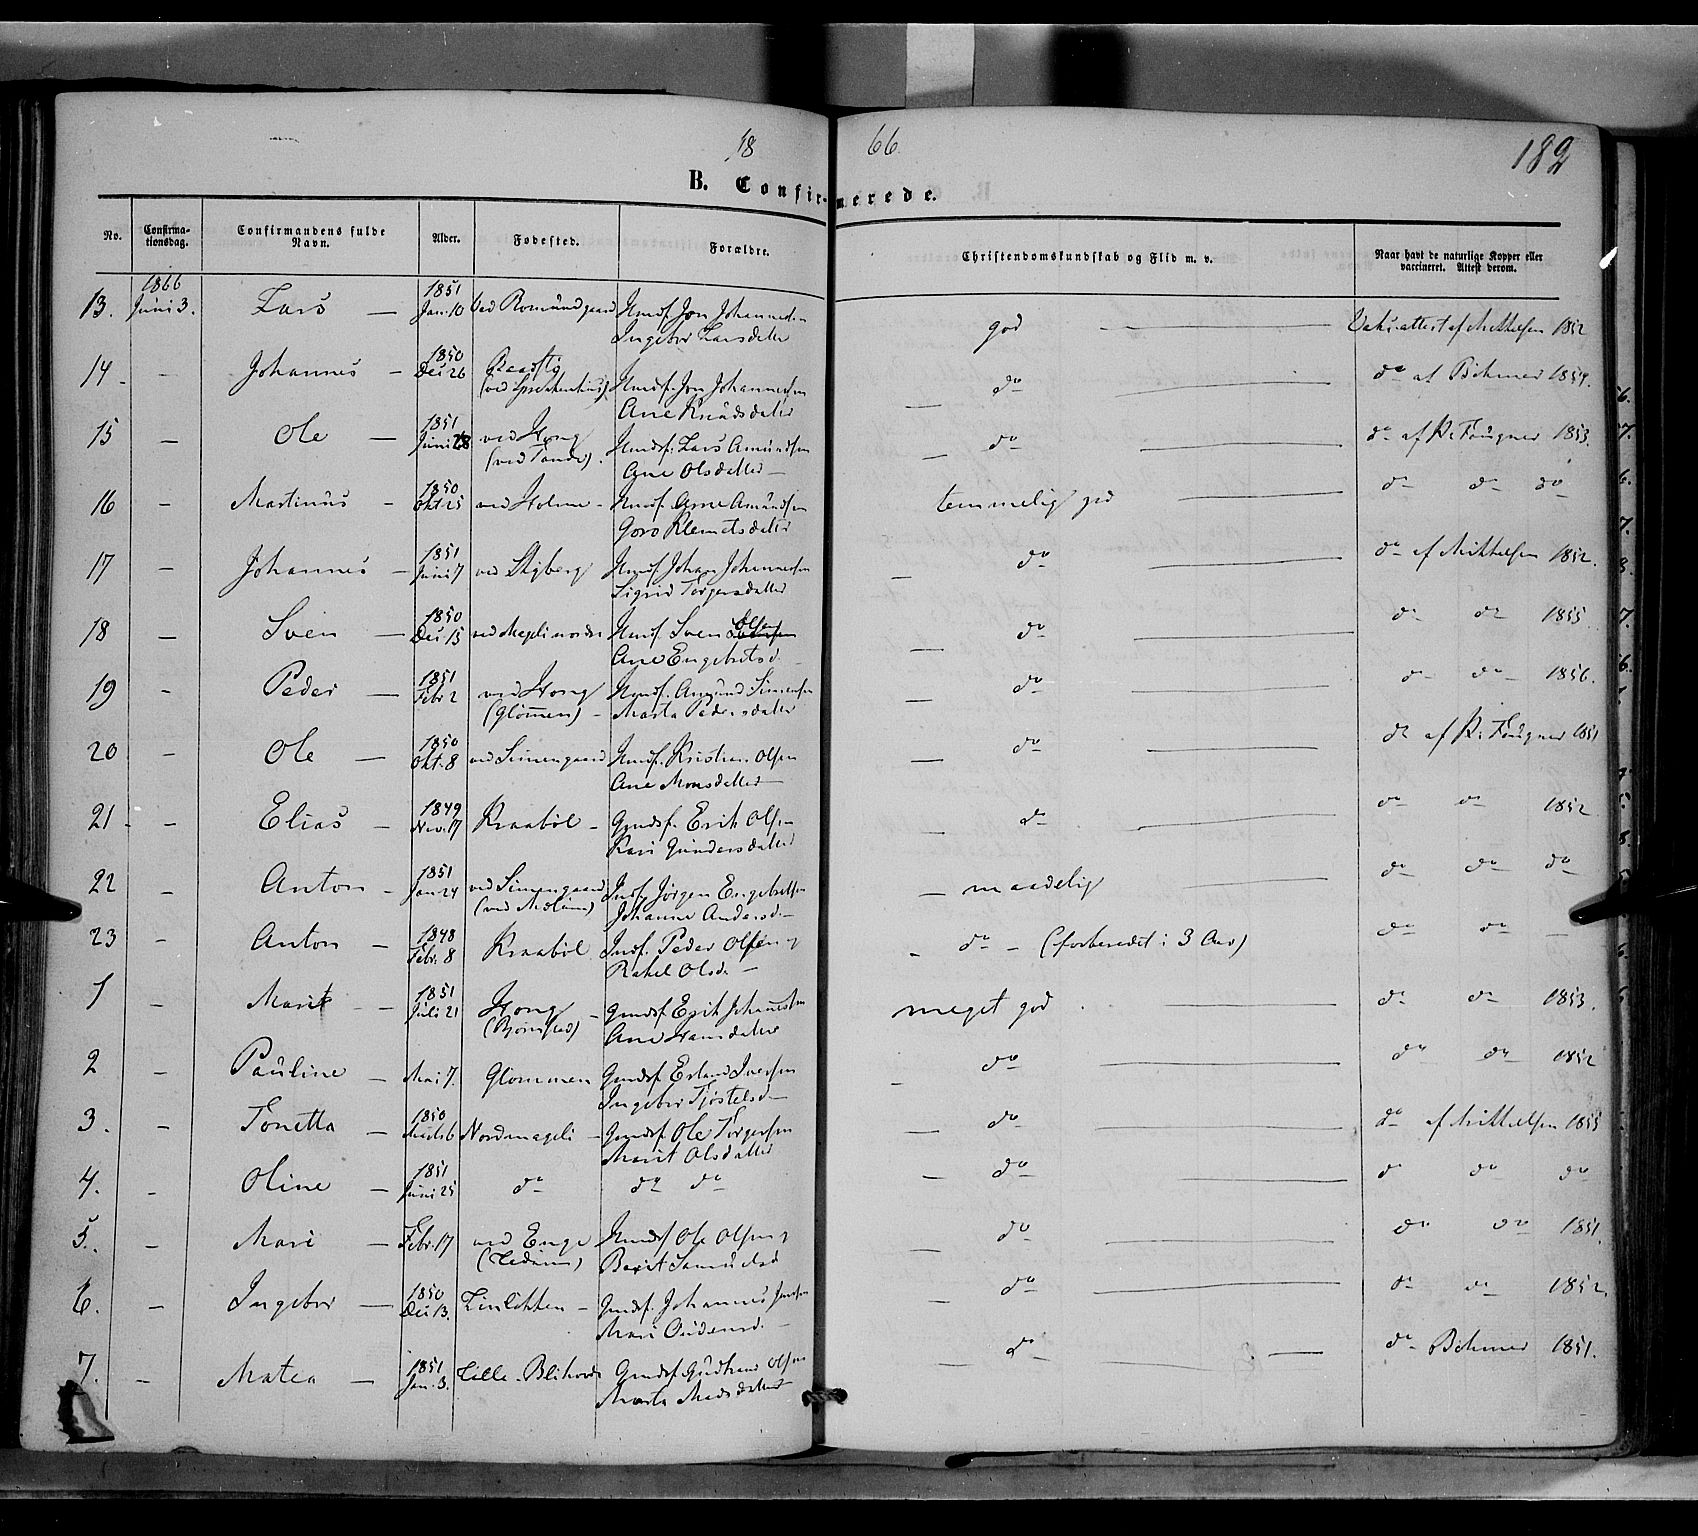 18 66.
182
B. Confirmerede.
No. Confirmationsdag. Confirmandens fulde Navn. Alder. Fødested. Forældre. Christendomskundskab og Flid m. v. Naar havt de naturlige Kopper eller vaccineret. Attest derom.
1866 1851
13. Juni 3. Lars — Jan. 10 ved Romundgaard Huusf. Jon Johannesen god — Vaks.attest af Mikkelsen 1852
Ingebor Larsdatter
14. - Johannes — 1850 Dec 26 Huusf. Jon Johannesen do — do af Böhmer 1854.
Ane Knudsdatter
15 - Ole — 1851 Juni 28 ved Hong Huusf. Lars Amundsen do — do af K. Fougner 1853.
(ved Tande). Ane Olsdatter —
16 - Martinus - 1850 Okt 25 ved Holme - Huusf. Arne Amundsen temmelig god — do do do
Goro Klemetsdatter
17 - Johannes — 1851 Juni 7 ved Skjberg Huusf. Johan Johannesen do — do af Mikkelsen 1852.
Sigrid Torgersdatter
18 - Sven — 1850 Dec 15 ved Mageli nordre Huusf. Sven Olsen do — do do 1855
Ane Engebretsd.
19 - Peder — 1851 Febr 2 ved Hong Huusf. Amund Simensen do — do do 1856.
(Glömmen) - Marta Pedersdatter
20 - Ole — 1850 Okt. 8 ved Simengaard Huusf. Kristian Olsen do — do af K. Fougner 1851
Ane Monsdatter —
21 - Elias - 1849 Nov. 17 Kraaböl - Gmdsf. Erik Olsen do — do do 1852
Kari Gundersdatter
22 - Anton - 1851 Jan 24 ved Simengaard Indf. Jörgen Engebretsen - maadelig — do do do
Johanne Andersd. -
23 - Anton - 1848 Febr. 8 Kraaböl Indf. Peder Olsen og - do - (forberedet i 3 Aar) do do —
Rakel Olsd. —
1 - Marit - 1851 Juli 21 Hong - Gmdsf. Erik Johannesen meget god — do do 1853.
(Björnstad) Ane Hansdatter
2 - Pauline - Mai 7. Glommen Gmdsf. Erland Iversen do — do do 1852
Ingebor Tjöstelsd —
3. - Tonetta — 1850 Nordmageli - Gmdsf. Ole Torgersen do — do af Mikkelsen 1853
Marit Olsdatter
4. - Oline — 1851 Juni 25 do do do - do — do do do
5. - Mari — Febr. 17 ved Enge Huusf Ole Olsen og do — do do 1851.
Berit Samuelsd
6. - Ingebor — 1850 Dec 13. Linlökken - Gmdsf. Johannes Jensen do — do do 1852.
Mari Oudensd. -
7. - Matea — 1851 Jan. 3. Lille-Blihovde Gmdsf Gudbrand Olsen do — do Böhmer 1851.
Marta Madsdatter